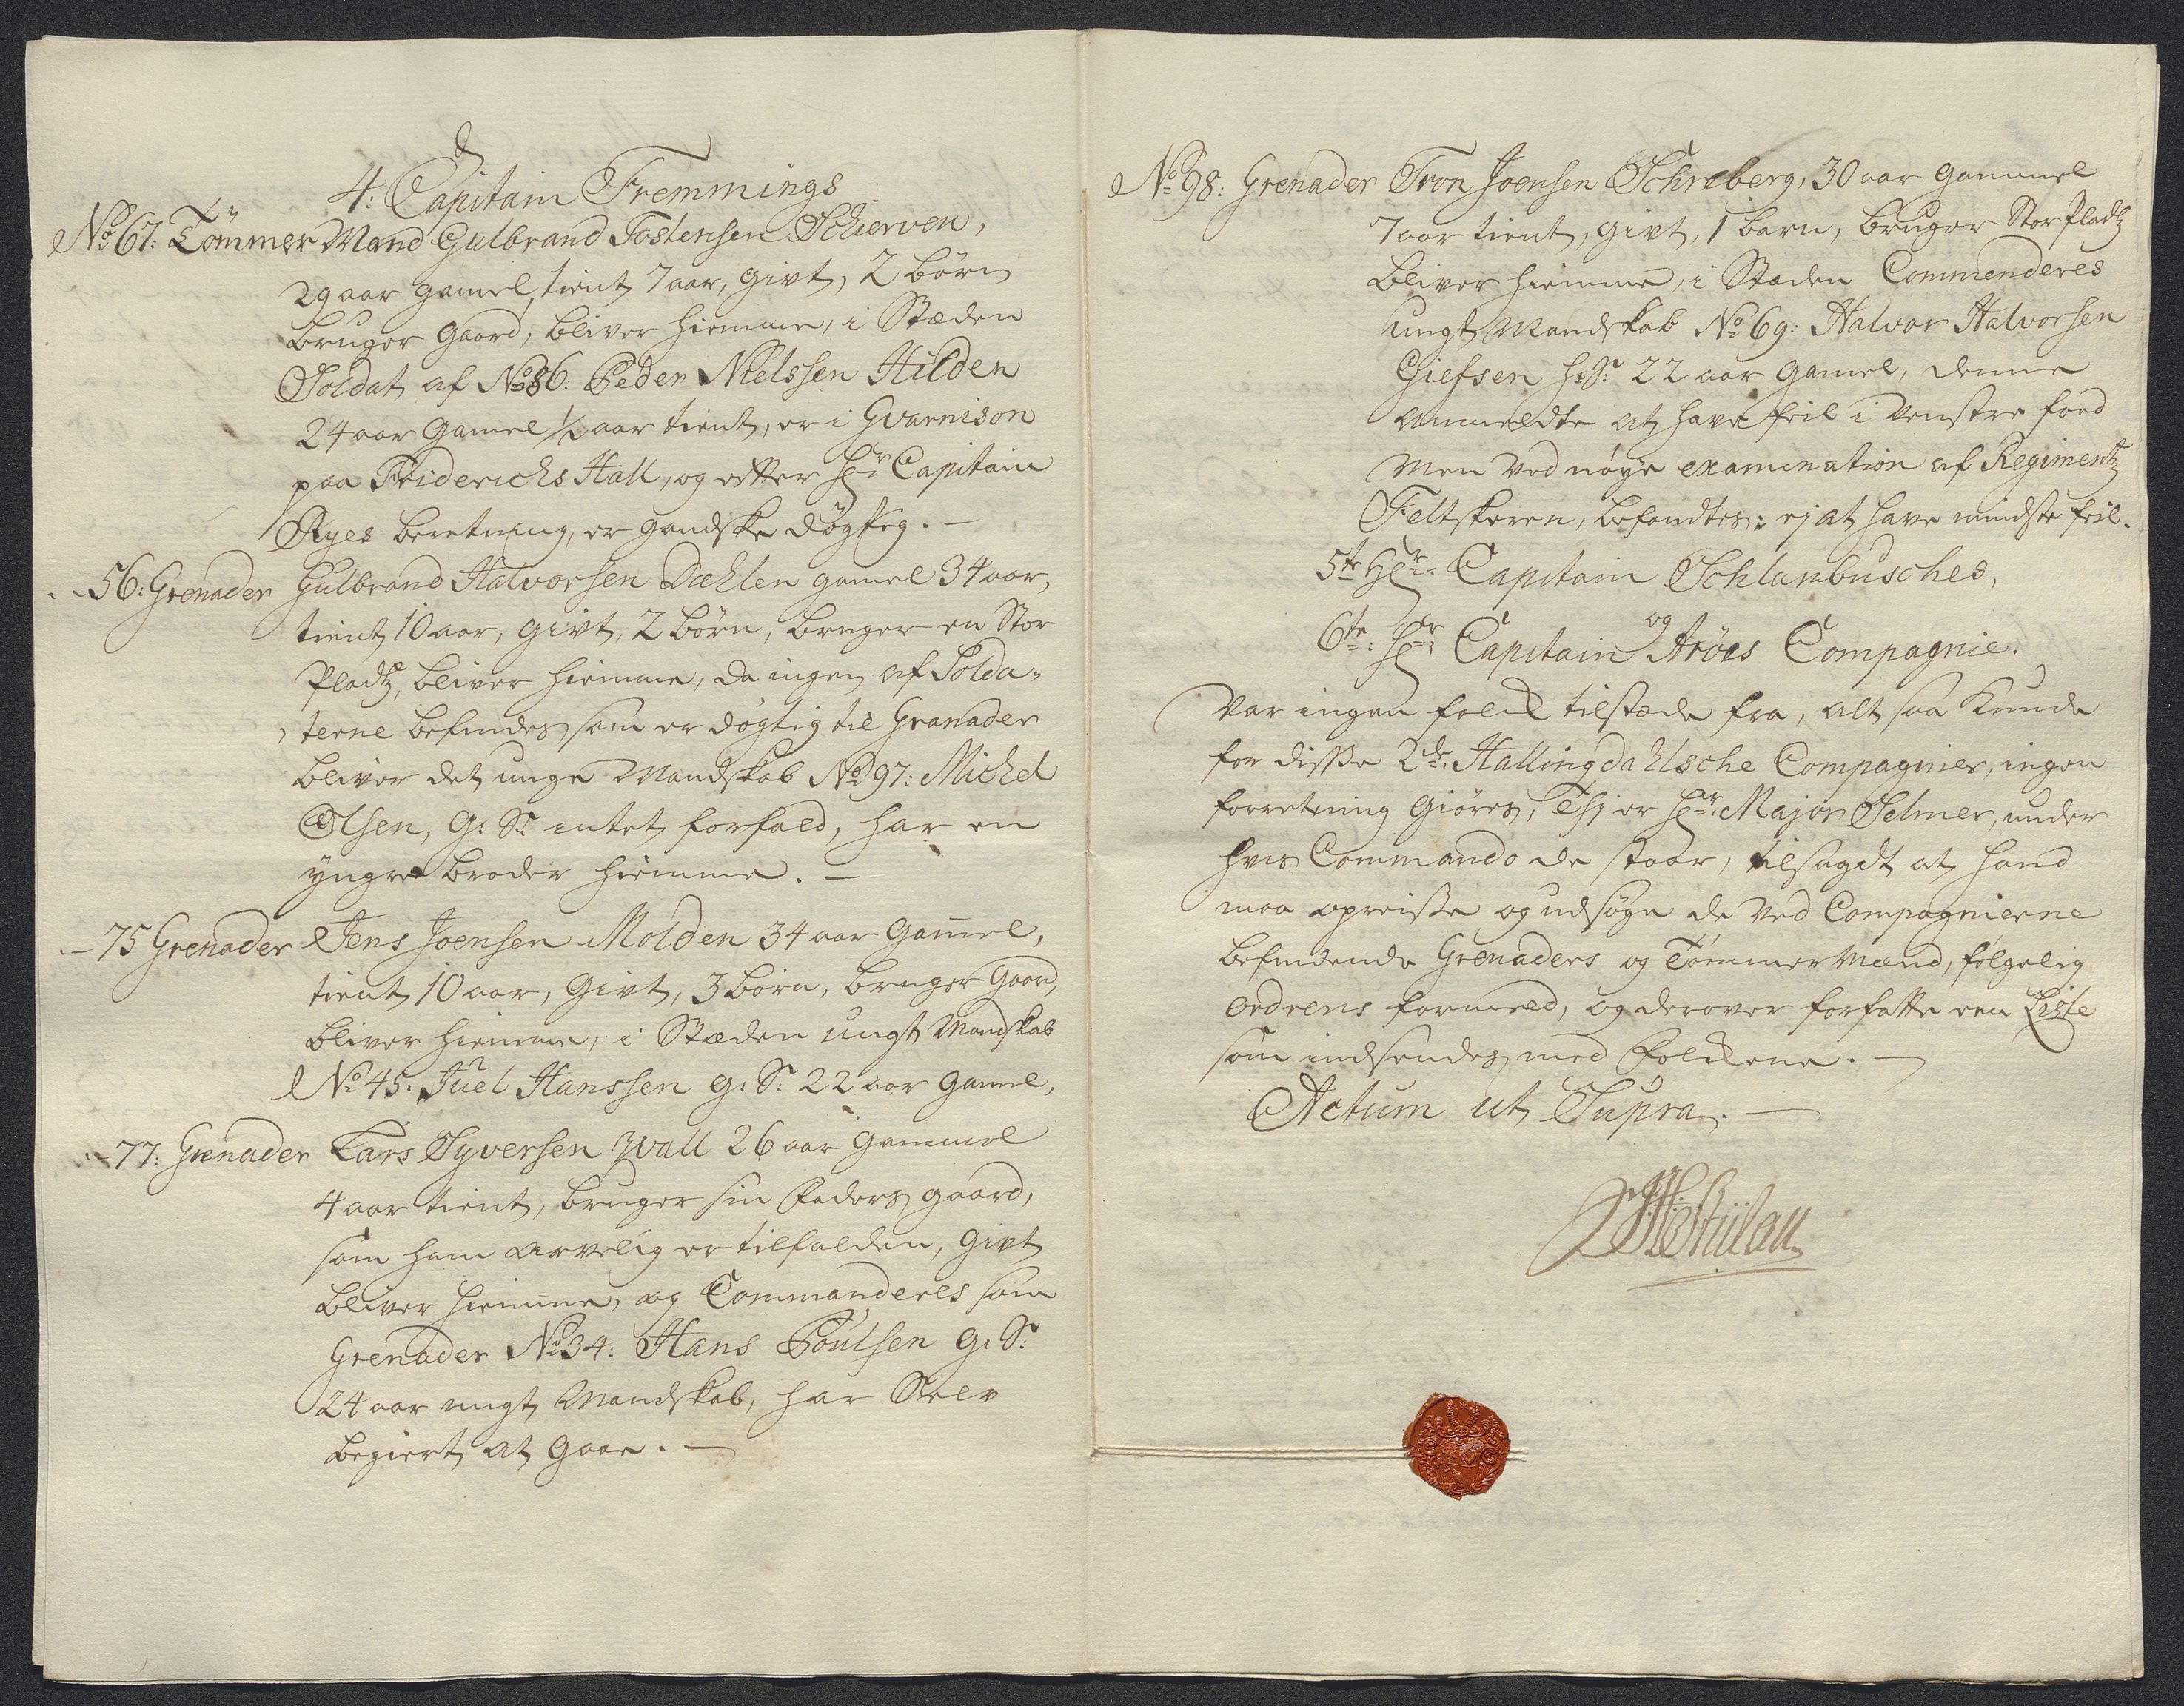 4: Capitain Fremmings
No 67: Tömmer Mand Gulbrand Tostensen Schierven,
29 aar gamel, tient 7 aar, givt, 2 börn
bruger gaard, bliver hiemme, i Stæden
Soldat af No 86: Peder Nielssen Hilden
24 aar gamel 1/2 aar tient, er i Gvarnison
paa Friderichs Hall, og efter Hr Capitain
Ryes beretning, er gandske døgtig. —
- 56: Grenader Gulbrand Halvorsen Dæhlen gamel 34 aar,
tient 10 aar, givt, 2 börn, bruger en Stor
Pladtz, bliver hiemme, da ingen af Solda-
terne befindes som er døgtig til Granader
bliver det unge Mandskab No 97: Michel
Olsen, g: S: intet forfald, har en
yngre broder hiemme. —
- 75 Grenader Jens Joensen Molden 34 aar gammel,
tient 10 aar, givt, 3 börn, bruger gaard,
bliver hiemme, i Stæden ungt Mandskab
No 45: Juel Hanssen g: S: 22 aar gamel,
- 77: Grenader Lars Syversen Wall 26 aar gammel
4 aar tient, bruger sin Faders gaard,
som ham arvelig er tilfalden, givt
bliver hiemme, og Commanderes som
Grenader No 34: Hans Poulsen g: S:
24 aar ungt Mandskab, har Selv
begiert at gaae. —
No 98: Grenader Tron Joensen Schreberg, 30 aar gammel
7 aar tient, givt, 1 barn, bruger Stor Pladtz
bliver hiemme, i Stæden Commenderes
ungt Mandskab No 69: Halvor Halvorsen
h: S: 22 aar gamel, denne
anmeldte at have feil i venstre foed
men ved nøye examination af Regimentz
Feltskeren, befandtes: ej at have mindste feil.
5te Hr: Capitain Schlanbusches,
og
6te: Hr: Capitain Aröes Compagnie.
Var ingen folck tilstæde fra, alt saa kunde
for disse 2de: Hallingdahlsche Compagnier, ingen
forretning giøres, Thj er Hr: Major Selmer, under
hvis Commando de staar, tilsagdt at hand
maa opreise og udsøge de ved Compagnierne
befindende Grenaders og Tömmer Mænd, følgelig
ordrens formeld, og derover forfatte een Liste
som indsendes med Folckene. —
Actum ut Supra. —